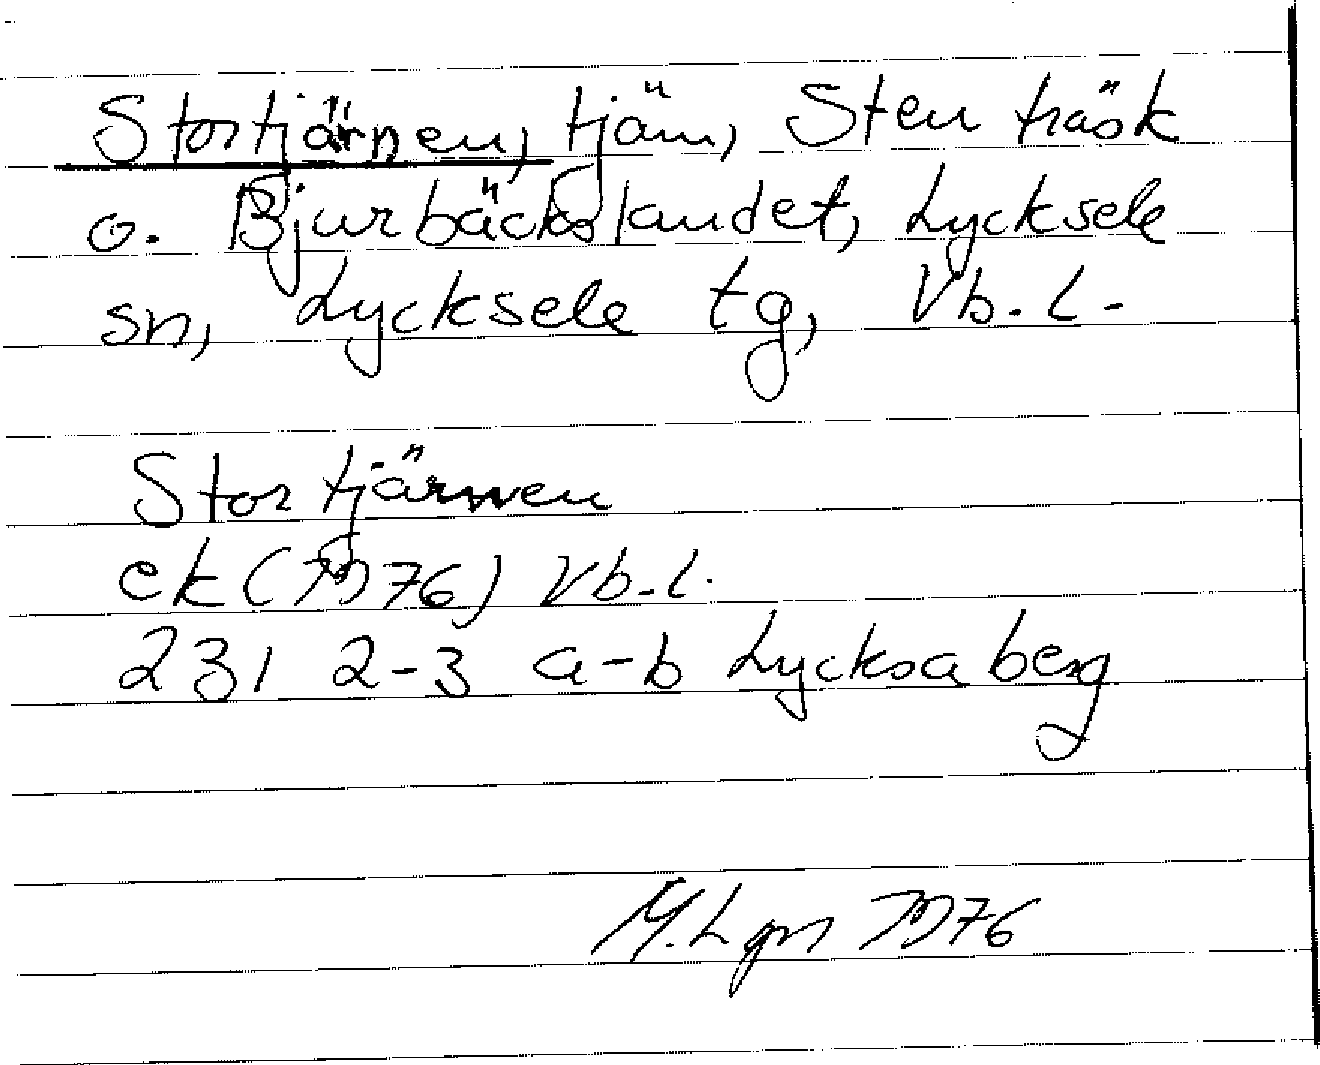 Stortjärnen, tjärn, Stenträsk
o. Bjurbäckslandet, Lycksele
sn, Lycksele tg, Vb. l.
Stortjärnen
ek (1976) Vb. l.
231 2-3 a-b Lycksaberg
M. Lgn 1976